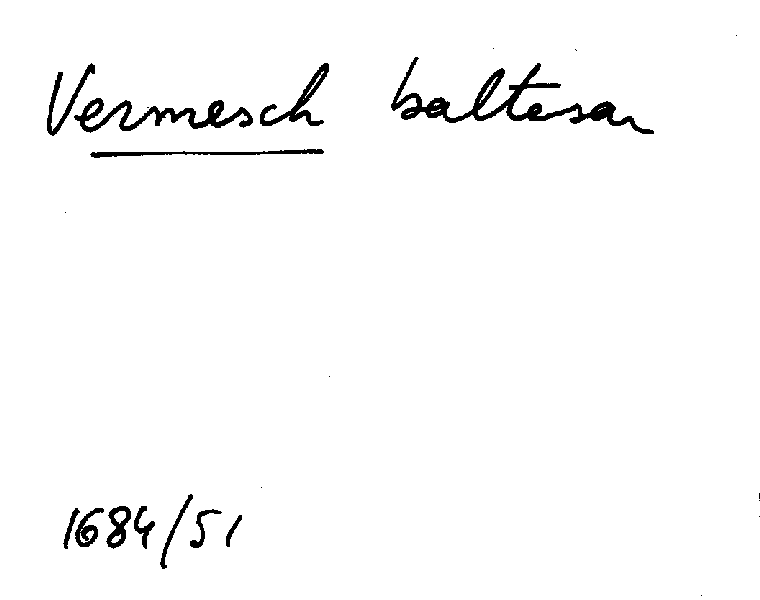 Vermesch baltesar
1684/51